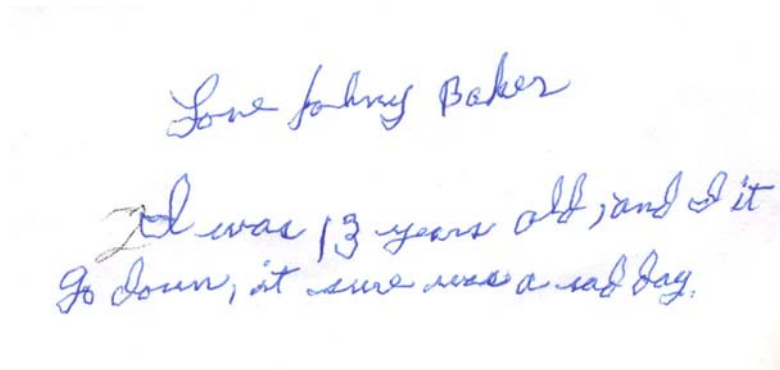 Love Johny Baker
I was 13 years old, and I it
go down, it sure was a sad day.